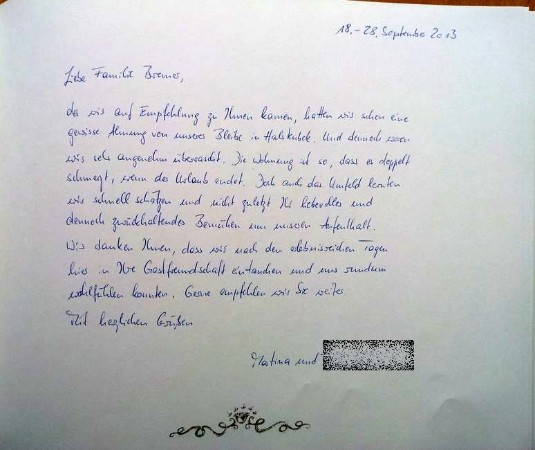 18. - 28. September 2013
Liebe Familie Bremer,
da wir auf Empfehlung zu Ihnen kamen, hatten wir schon eine
gewisse Ahnung von unserer Bleibe in. Und dennoch waren
wir sehr angenehm überrascht. Die Wohnung ist so, dass es doppelt
schmerzt, wenn der Urlaub endet. Doch auch das Umfeld lernten
wir schnell schätzen und nicht zuletzt Ihr liebevolles und
dennoch zurückhaltendes Bemühen um unseren Aufenthalt.
Wir danken Ihnen, dass wir nach den erlebnisreichen Tagen
hier in Ihre Gastfreundschaft eintauchen und uns rundum
wohlfühlen konnten. Gerne empfehlen wir Sie weiter.
Mit herzlichen Grüßen
Martina und